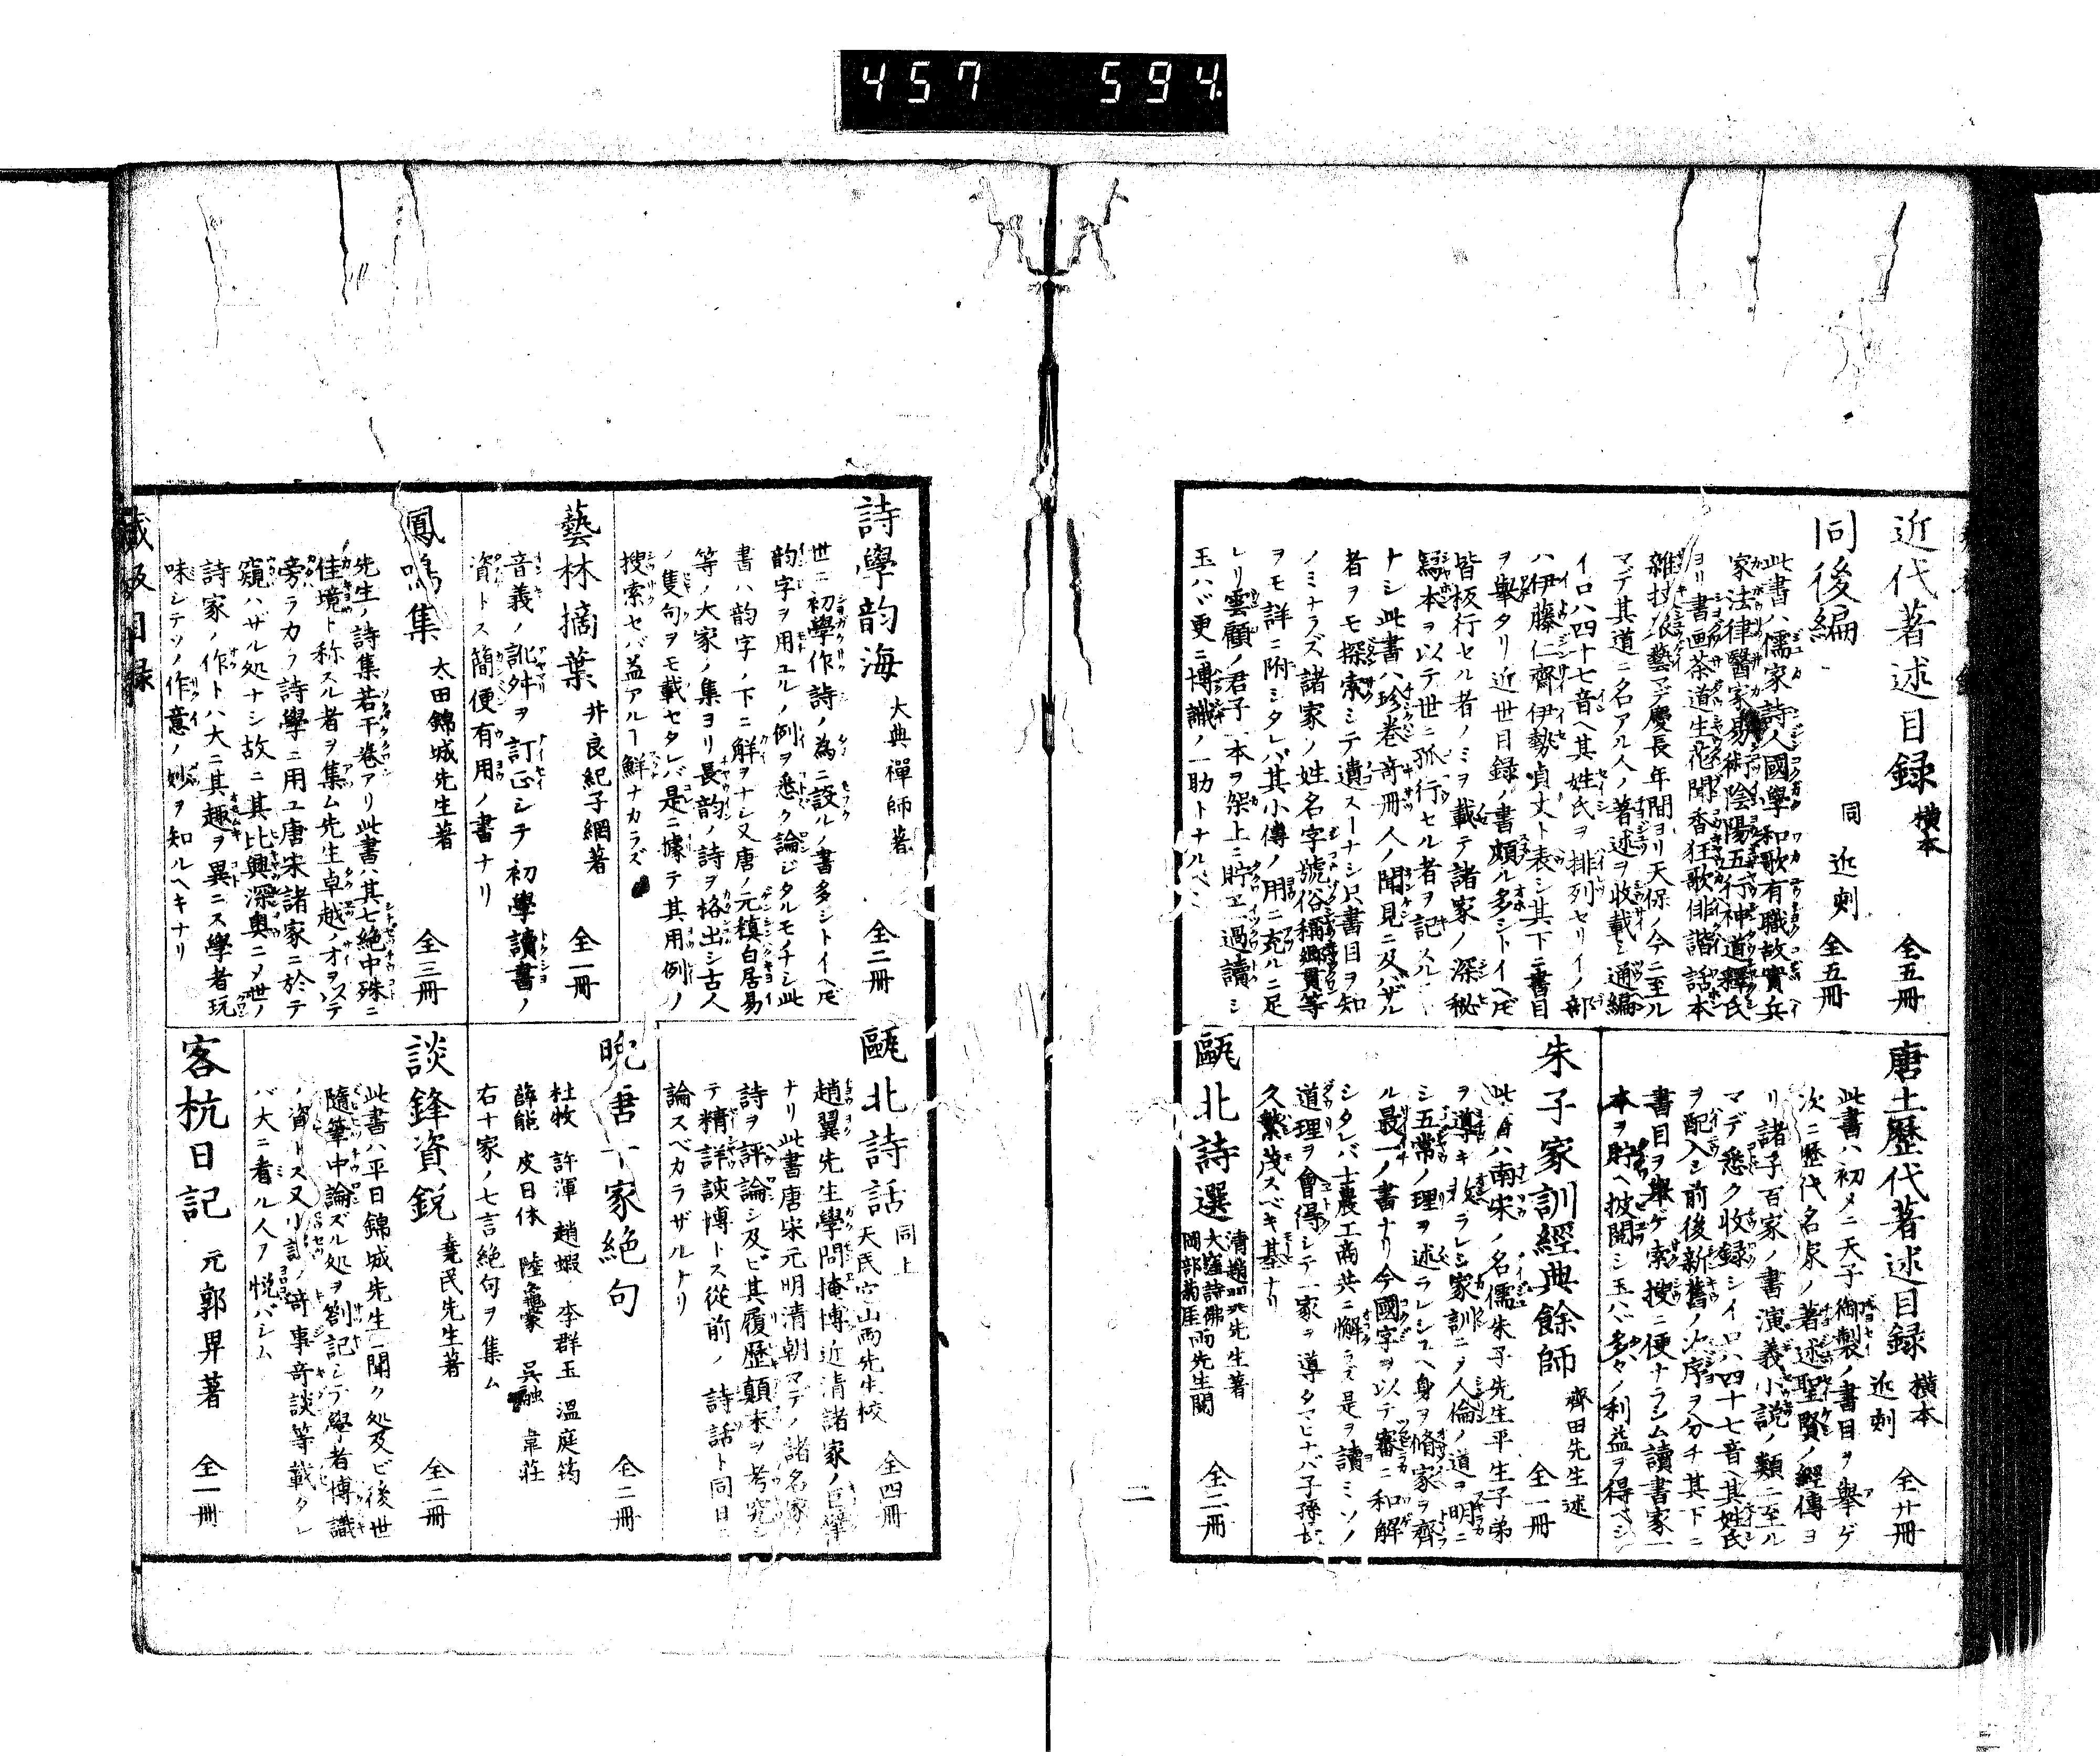 457 594.
近代著述目録 横本 全五冊
同後編 同 近刻 全五冊
此書ハ儒家詩人國學和歌有職故實兵
家法律醫家易術陰陽五行神道釋氏
ヨリ書画茶道生花聞香狂歌俳諧話本
雜技小藝マデ慶長年間ヨリ天保ノ今ニ至ル
マデ其道ニ名アル人ノ著述ヲ收載シ通編
イロハ四十七音ヘ其姓氏ヲ排列セリイノ部
ハ伊藤仁齋伊勢貞丈ト表シ其下ニ書目
ヲ擧タリ近世目録ノ書頗ル多シトイヘ𪜈
皆板行セル者ノミヲ載テ諸家ノ深秘
寫本ヲ以テ世ニ孤行セル者ヲ記スル
ナシ此書ハ珍卷奇冊人ノ聞見ニ及バザル
者ヲモ探索シテ遺スヿナシ只書目ヲ知
ノミナラズ諸家ノ姓名字號俗稱郷貫等
ヲモ詳ニ附シタレバ其小傳ノ用ニ充ルニ足
レリ雲顧ノ君子一本ヲ架上ニ貯ヱ過讀シ
玉ハヾ更ニ博識ノ一助トナルベシ
唐土歷代著述目録 横本 近刻 全廿冊
此書ハ初メニ天子御製ノ書目ヲ擧ゲ
次ニ歷代名家ノ著述聖賢ノ經傳ヨ
リ諸子百家ノ書演義小説ノ類ニ至ル
マデ悉ク收録シイロハ四十七音ヘ其姓氏
ヲ配入シ前後新舊ノ次序ヲ分チ其下ニ
書目ヲ擧ゲ索搜ニ便ナラシム讀書家一
本ヲ貯ヘ披閲シ玉ハバ多々ノ利益ヲ得ベシ
朱子家訓經典餘師 齊田先生述 全一冊
此書ハ南宋ノ名儒朱子先生平生子弟
ヲ導キ教ラレシ家訓ニメ人倫ノ道ヲ明ニ
シ五常ノ理ヲ述ラレシユヘ身ヲ脩家ヲ齊
ル最一ノ書ナリ今國字ヲ以テ審ニ和解
シタレバ士農工商共ニ懈ラズ是ヲ讀ミソノ
道理ヲ會得シテ一家ヲ導タマヒナバ子孫長
久繁茂スベキ基ナリ
甌北詩選 清趙翼先生著 大窪詩佛 岡部菊厓 兩先生閲 全二冊
二
詩學韵海 大典禪師著 全二冊
世ニ初學作詩ノ為ニ設ルノ書多シトイヘ𪜈
韵字ヲ用ユルノ例ヲ悉ク論ジタルモナシ此
書ハ韵字ノ下ニ解ヲナシ又唐ノ元稹白居易
等ノ大家ノ集ヨリ長韵ノ詩ヲ格出シ古人
ノ隻句ヲモ載セタレバ是ニ據テ其用例ノ
搜索セバ益アルヿ鮮ナカラズ
藝林摘葉 井良紀子網著 全一冊
音義ノ訛舛ヲ訂正シテ初學讀書ノ
資トス簡便有用ノ書ナリ
鳳鳴集 太田錦城先生著 全三冊
先生ノ詩集若干卷アリ此書ハ其七絶中殊ニ
佳境ト称スル者ヲ集ム先生卓越ノ才ヲステ
旁ラカラ詩學ニ用ユ唐宋諸家ニ於テ
窺ハザル処ナシ故ニ其比興深奥ニメ世ノ
詩家ノ作トハ大ニ其趣ヲ異ニス學者玩
味シテソノ作意ノ妙ヲ知ルヘキナリ
甌北詩話 同上 天民 寛山 両先生校 全四冊
趙翼先生學問掩博近清諸家ノ巨擘
ナリ此書唐宋元明清朝マデノ諸名家ノ
詩ヲ評論シ及ビ其履歷顛末ヲ考究シ
テ精詳該博トス從前ノ詩話ト同日ニ
論スベカラザルナリ
晩唐十家絶句 全二冊
杜牧 許渾 趙嘏 李群玉 溫庭筠
薛能 皮日休 陸龜蒙 吳融 韋莊
右十家ノ七言絶句ヲ集ム
談鋒資鋭 堯民先生著 全二冊
此書ハ平日錦城先生ニ聞ク処及ビ後世
隨筆中論ズル処ヲ劄記シテ學者博識
ノ資トス又小説ノ奇事奇談等載タレ
バ大ニ看ル人ヲ悦バシム
客杭日記 元郭畀著 全一冊
藏板目録